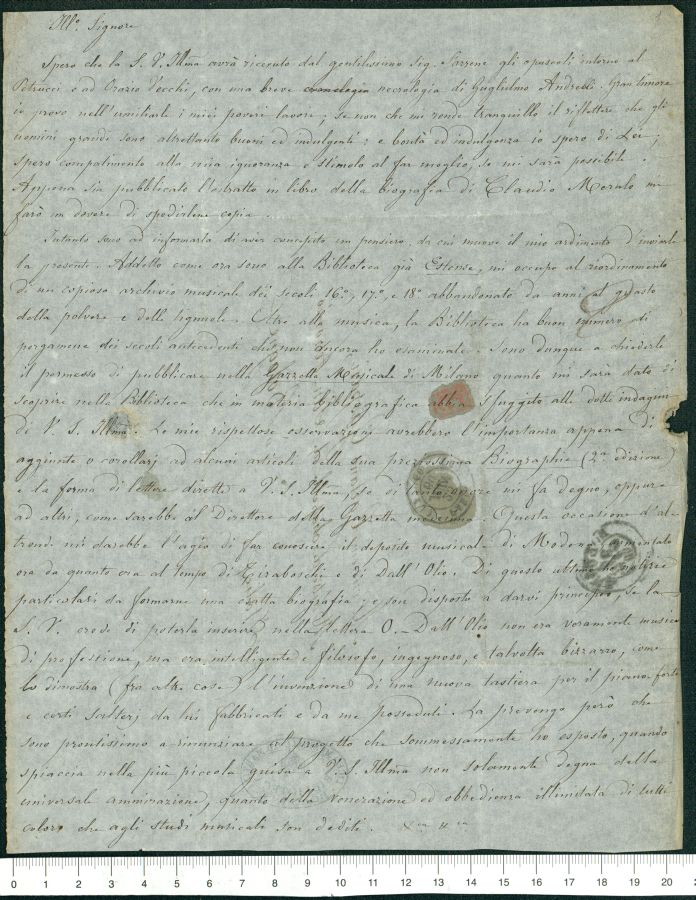 Ill.o Signore
Spero che la S. V. Ill.ma avrà ricevuto dal gentilissimo Sig. Farrenc gli opuscoli intorno al
Petrucci, e ad Orazio Vecchi, con una breve necrologia di Guglielmo Andreoli. Gran timore
io provo nell'umiliarle i miei poveri lavori; se non che mi rende tranquillo il riflettere che gli
uomini grandi sono altrettanto buoni ed indulgenti: e bontà ed indulgenza io spero di Lei;
spero compatimento alla mia ignoranza e stimolo al far meglio, se mi sarà possibile.
Appena sia pubblicato l'estratto in libro della biografia di Claudio Merulo mi
farò un dovere di spedirlene copia.
Intanto sono ad informarla di aver concepito un pensiero, da cui muove il mio ardimento d'inviarle
la presente. Addetto come ora sono alla Biblioteca già Estense, mi occupo al riordinamento
di un copioso archivio musicale dei secoli 16.o, 17.o, e 18.o abbandonato da anni al guasto
della polvere e delle tignuole. Oltre alla musica, la Biblioteca ha buon numero di
pergamene dei secoli antecedenti che non ancora ho esaminate. Sono dunque a chiederle
il permesso di pubblicare nella Gazzetta Musicale di Milano quanto mi sarà dato di
scoprire nella Biblioteca che in materia bibliografica abbia sfuggito alle dotte indagini
di V. S. Ill.ma. Le mie rispettose osservazioni avrebbero l'importanza appena di
aggiunte o corollarj ad alcuni articoli della sua preziosissima Biographie (2.a edizione)
e la forma di lettere dirette a V. S. Ill.ma, se di tanto onore mi fa degno, oppure
ad altri, come sarebbe al Direttore della Gazzetta medesima. Questa occasione d'al-
tronde mi darebbe l'agio di far conoscere il deposito musicale di Modena aumentato
ora da quanto era al tempo di Tiraboschi e di Dall'Olio. Di questo ultimo ho notizie
particolari da formarne una esatta biografia; e son disposto a darvi principio, se la
S. V. crede di poterla inserire nella lettera O. Dall'Olio non era veramente musico
di professione, ma era intelligente e filosofo, ingegnoso, e talvolta bizzarro, come
lo dimostra (fra altre cose) l'invenzione di una nuova tastiera per il piano-forte
e certi salterj da lui fabbricati e da me posseduti. La prevengo però che
sono prontissimo a rinunziare al progetto che sommessamente ho esposto, quando
spiaccia nella più piccola guisa a V. S. Ill.ma non solamente degna della
universale ammirazione, quanto della venerazione ed obbedienza illimitata di tutti
coloro che agli studi musicali son dediti.
0 1 2 3 4 5 6 7 8 9 10 11 12 13 14 15 16 17 18 19 20